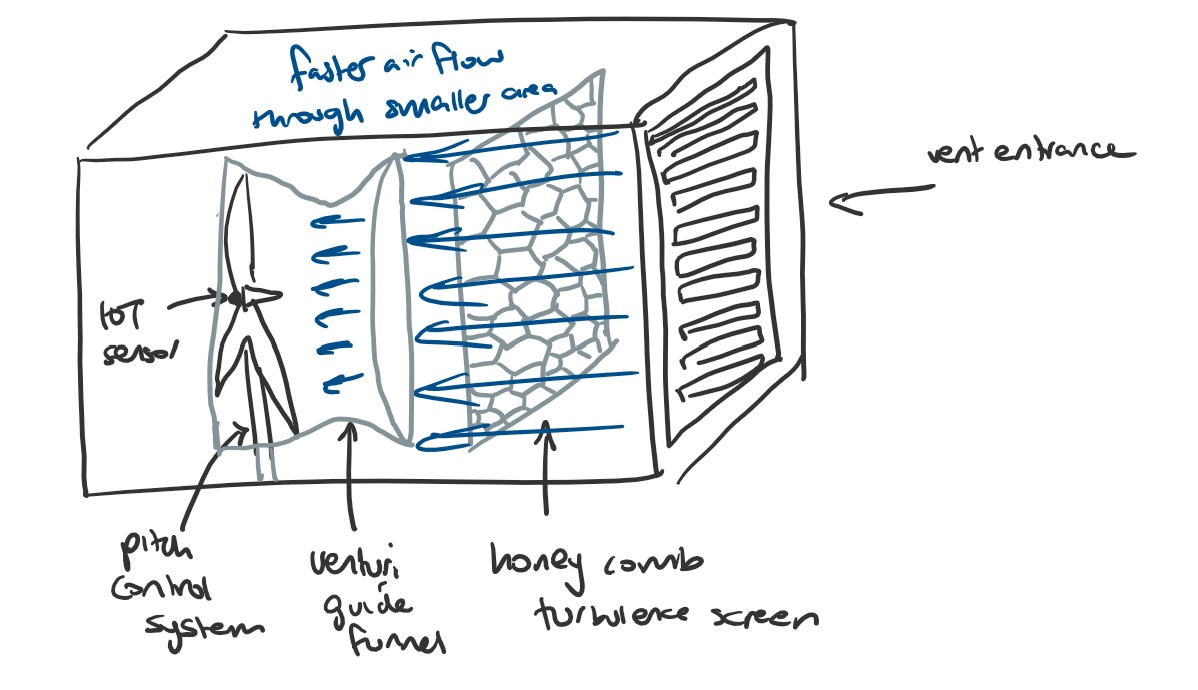 faster air flow
through smaller area
vent entrance
IOT
sensor
pitch
control
system
venturi
guide
funnel
honey comb
turbulence screen